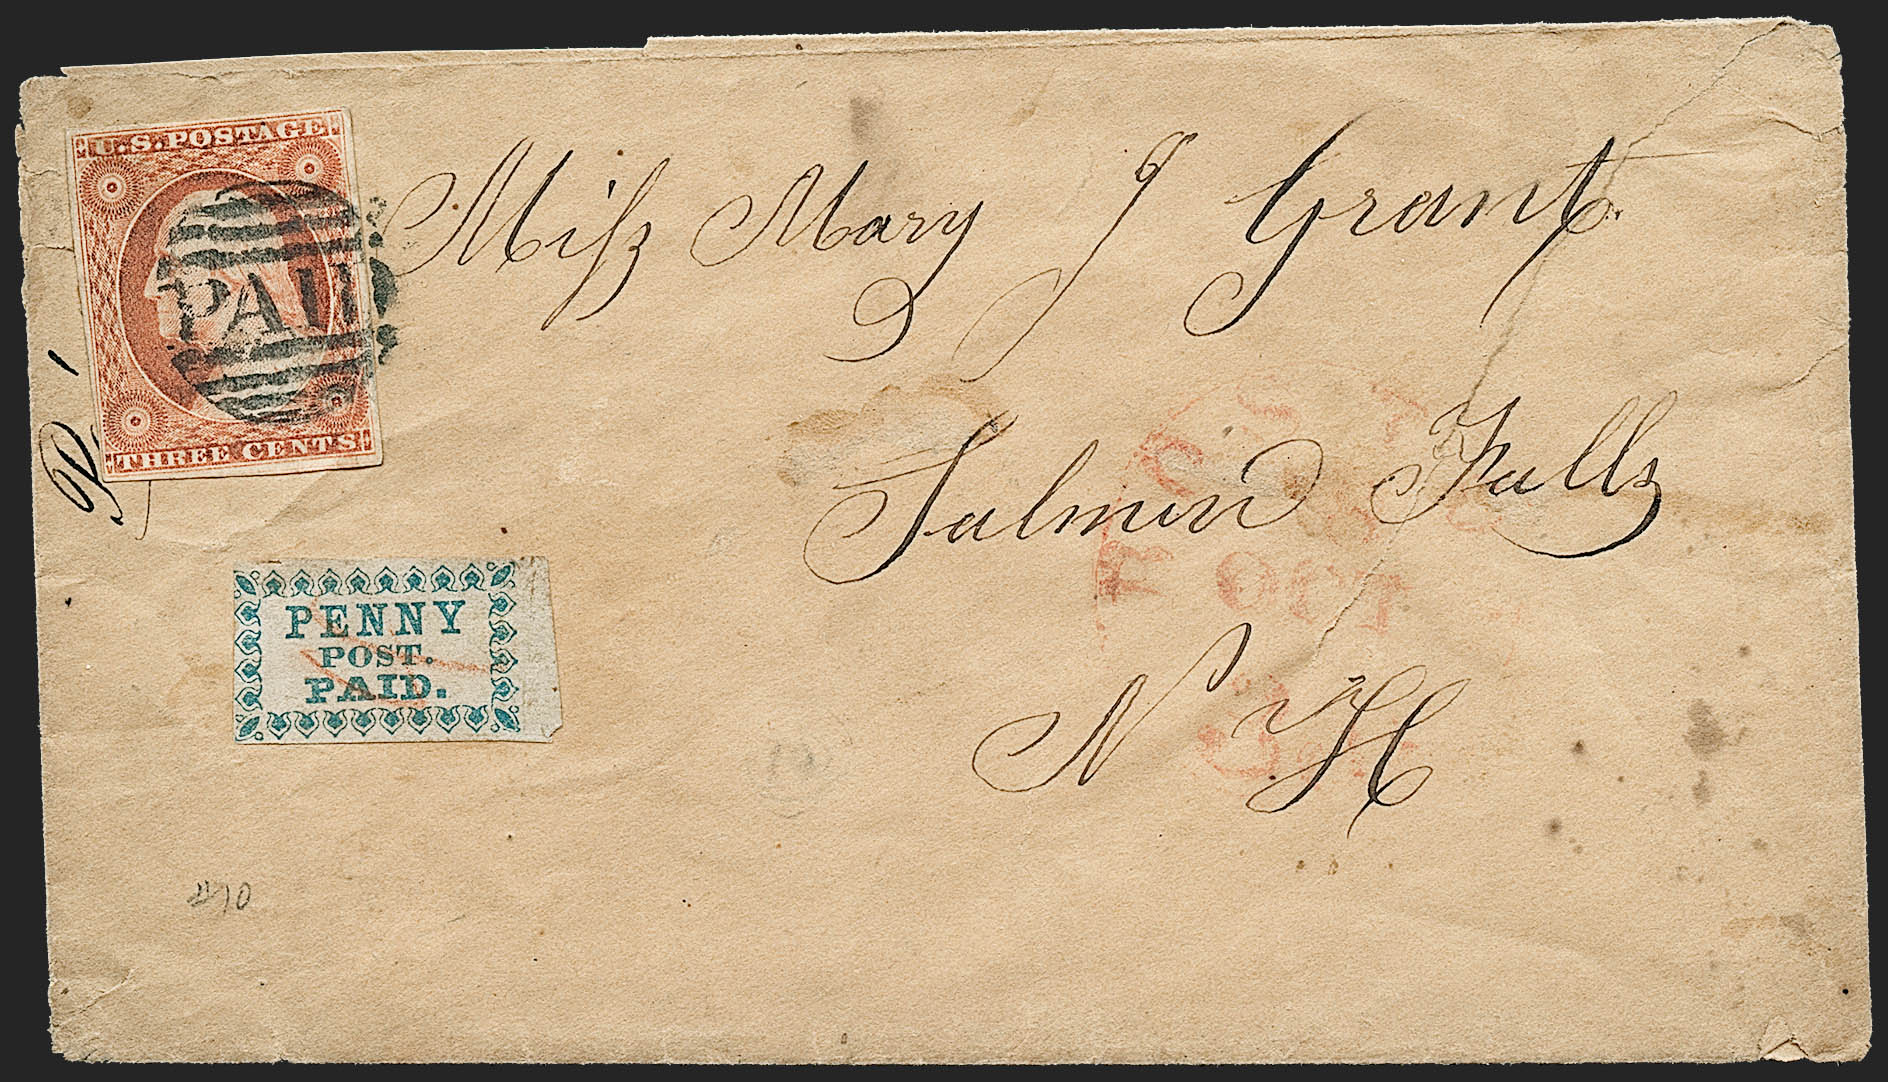 U.S. POSTAGE
PAID
THREE CENTS
Miſs Mary J Grant
Salmon Falls
N H
PENNY
POST.
PAID.
OCT
3 cts
#10